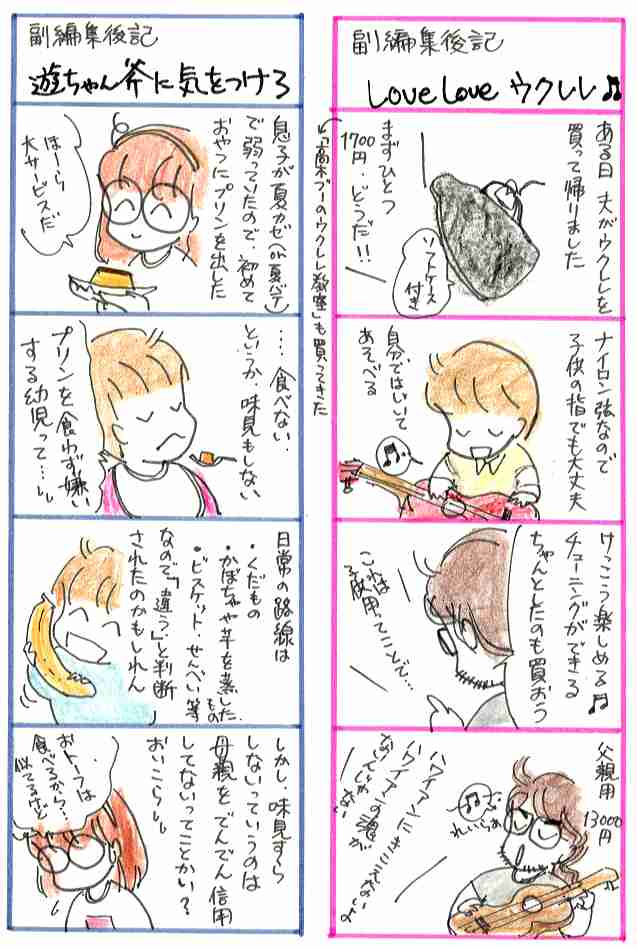 副編集後記
Love Love ウクレレ♫
ある日 夫がウクレレを
買って帰りました
まずひとつ
1700円・どうだ!!
ソフトケース
付き
←「高木ブーのウクレレ教室」も買ってきた
ナイロン弦なので
子供の指でも大丈夫
自分ではいいて
あそべる
けっこう楽しめる♫
チューニングができる
ちゃんとしたのも買おう
これは
子供用ってことで…
父親用
13000円
れいらぁ
ハワイアンに
きこえないよ
ハワイアンの魂が
ないんじゃない
副編集後記
遊ちゃん斧に気をつけろ
息子が夏カゼ(or夏バテ)
で弱っていたので、初めて
おやつにプリンを出した
はーら
大サービスだ
…食べない.
というか、味見もしない
プリンを食わず嫌い
する幼児って…
日常の路線は
・くだもの
・かぼちゃや芋を蒸したもの
・ビスケット・せんべい等
なので「違う」と判断
されたのかもしれん
しかし、味見すら
しないっていうのは
母親をでんでん信用
してないってことかい?
おいこら
おトーフは
食べるから…
似てるけど